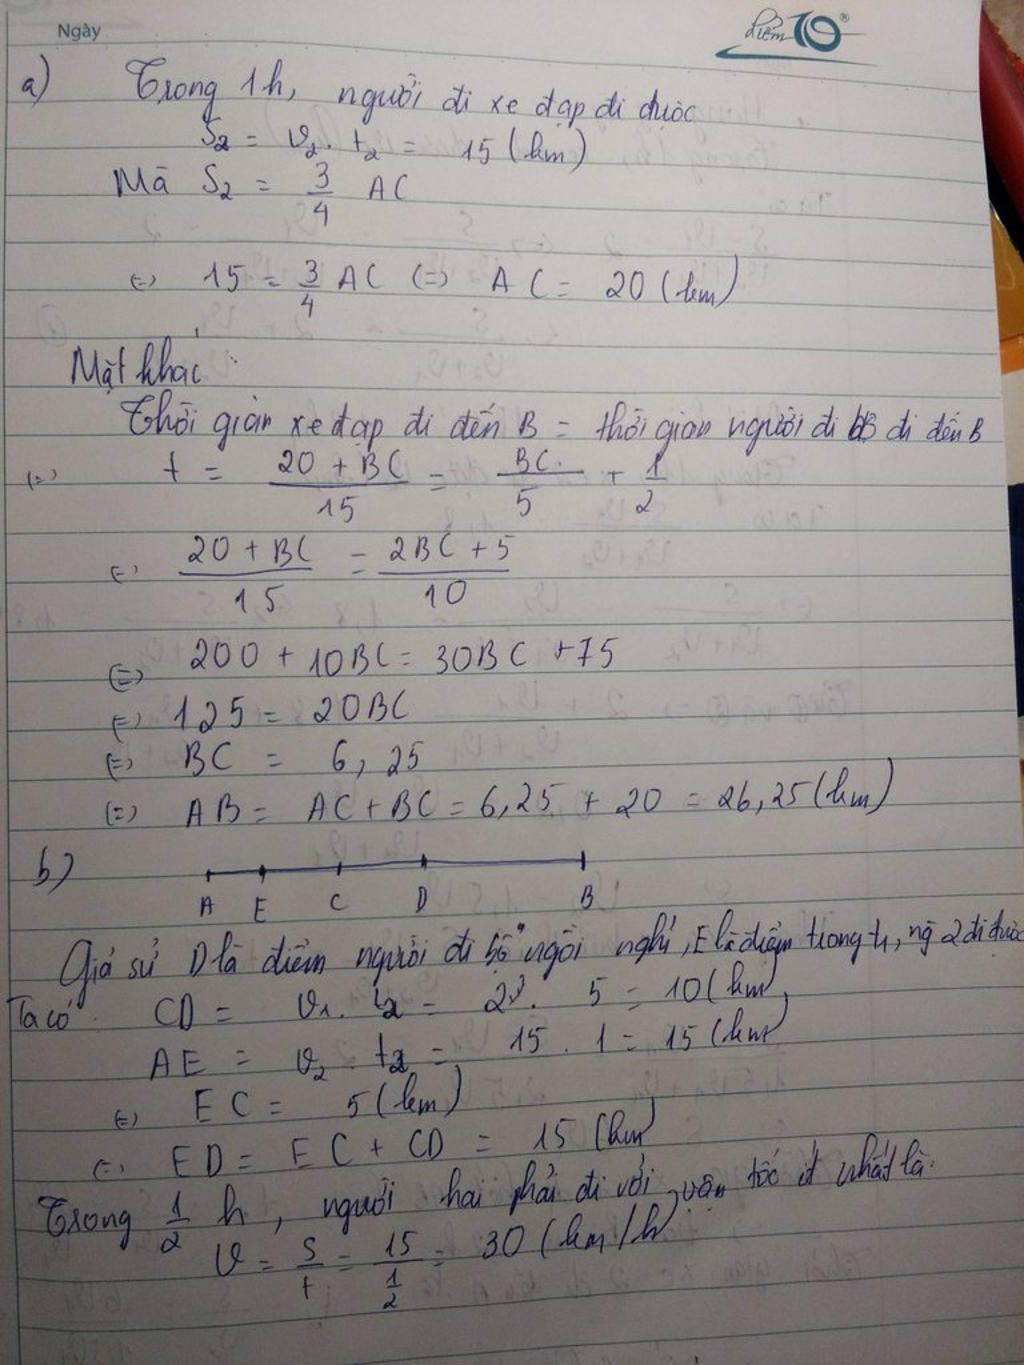 Ngày
điểm 10®
a) Trong 1h, người đi xe đạp đi được
S₂ = v₂. t₂ = 15 (km)
Mà S₂ = 3/4 AC
(=) 15 = 3/4 AC (=) AC = 20 (km)
Mặt khác
Thời gian xe đạp đi đến B = thời gian người đi bộ đi đến B
(=) t = (20 + BC)/15 = BC/5 + 1/2
(=) (20 + BC)/15 = (2BC + 5)/10
(=) 200 + 10BC = 30BC + 75
(=) 125 = 20BC
(=) BC = 6,25
(=) AB = AC + BC = 6,25 + 20 = 26,25 (km)
b)
A E C D B
Giả sử D là điểm người đi bộ ngồi nghỉ, E là điểm trong 1h, ng 2 đi được
Ta có CD = v₁. t₂ = 2. 5 = 10 (km)
AE = v₂. t₂ = 15 . 1 = 15 (km)
(=) EC = 5 (km)
(=) ED = EC + CD = 15 (km)
Trong 1/2 h, người hai phải đi với vận tốc ít nhất là:
v = S/t = 15/(1/2) = 30 (km/h)